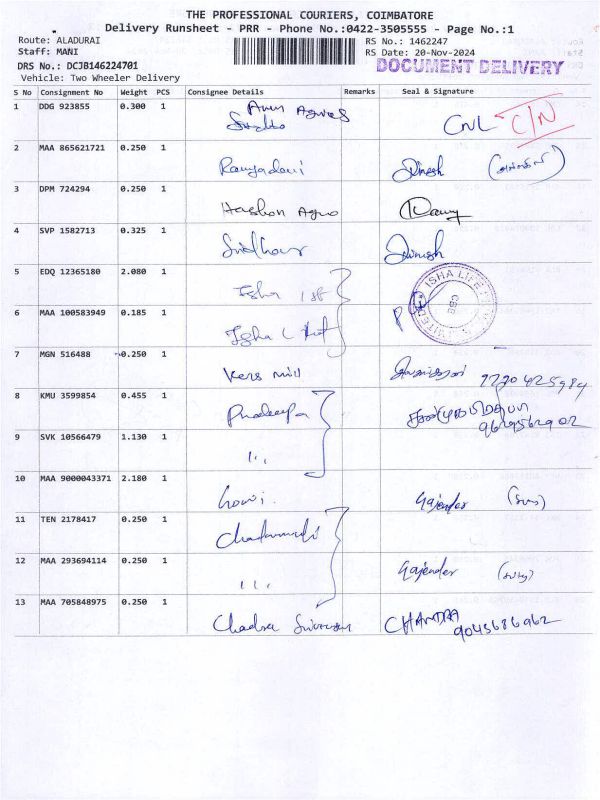 THE PROFESSIONAL COURIERS, COIMBATORE
Delivery Runsheet - PRR - Phone No.:0422-3505555 - Page No.:1
Route: ALADURAI
RS No.: 1462247
Staff: MANI
RS Date: 20-Nov-2024
DRS No.: DCJB146224701
DOCUMENT DELIVERY
Vehicle: Two Wheeler Delivery
S No Consignment No Weight PCS Consignee Details Remarks Seal & Signature
1 DDG 923855 0.300 1 CNL C/N
2 MAA 865621721 0.250 1 Ramyadevi Dinesh
3 DPM 724294 0.250 1
4 SVP 1582713 0.325 1 Sridhar Dinesh
5 EDQ 12365180 2.080 1 Isha ISHA LIFE CBE
6 MAA 100583949 0.185 1 Isha L
7 MGN 516488 0.250 1 Kers mill
8 KMU 3599854 0.455 1 Pradeepa
9 SVK 10566479 1.130 1 ,,,
10 MAA 9000043371 2.180 1 Gajender
11 TEN 2178417 0.250 1
12 MAA 293694114 0.250 1 ,,, Gajender
13 MAA 705848975 0.250 1 CHANDRA
9045686962